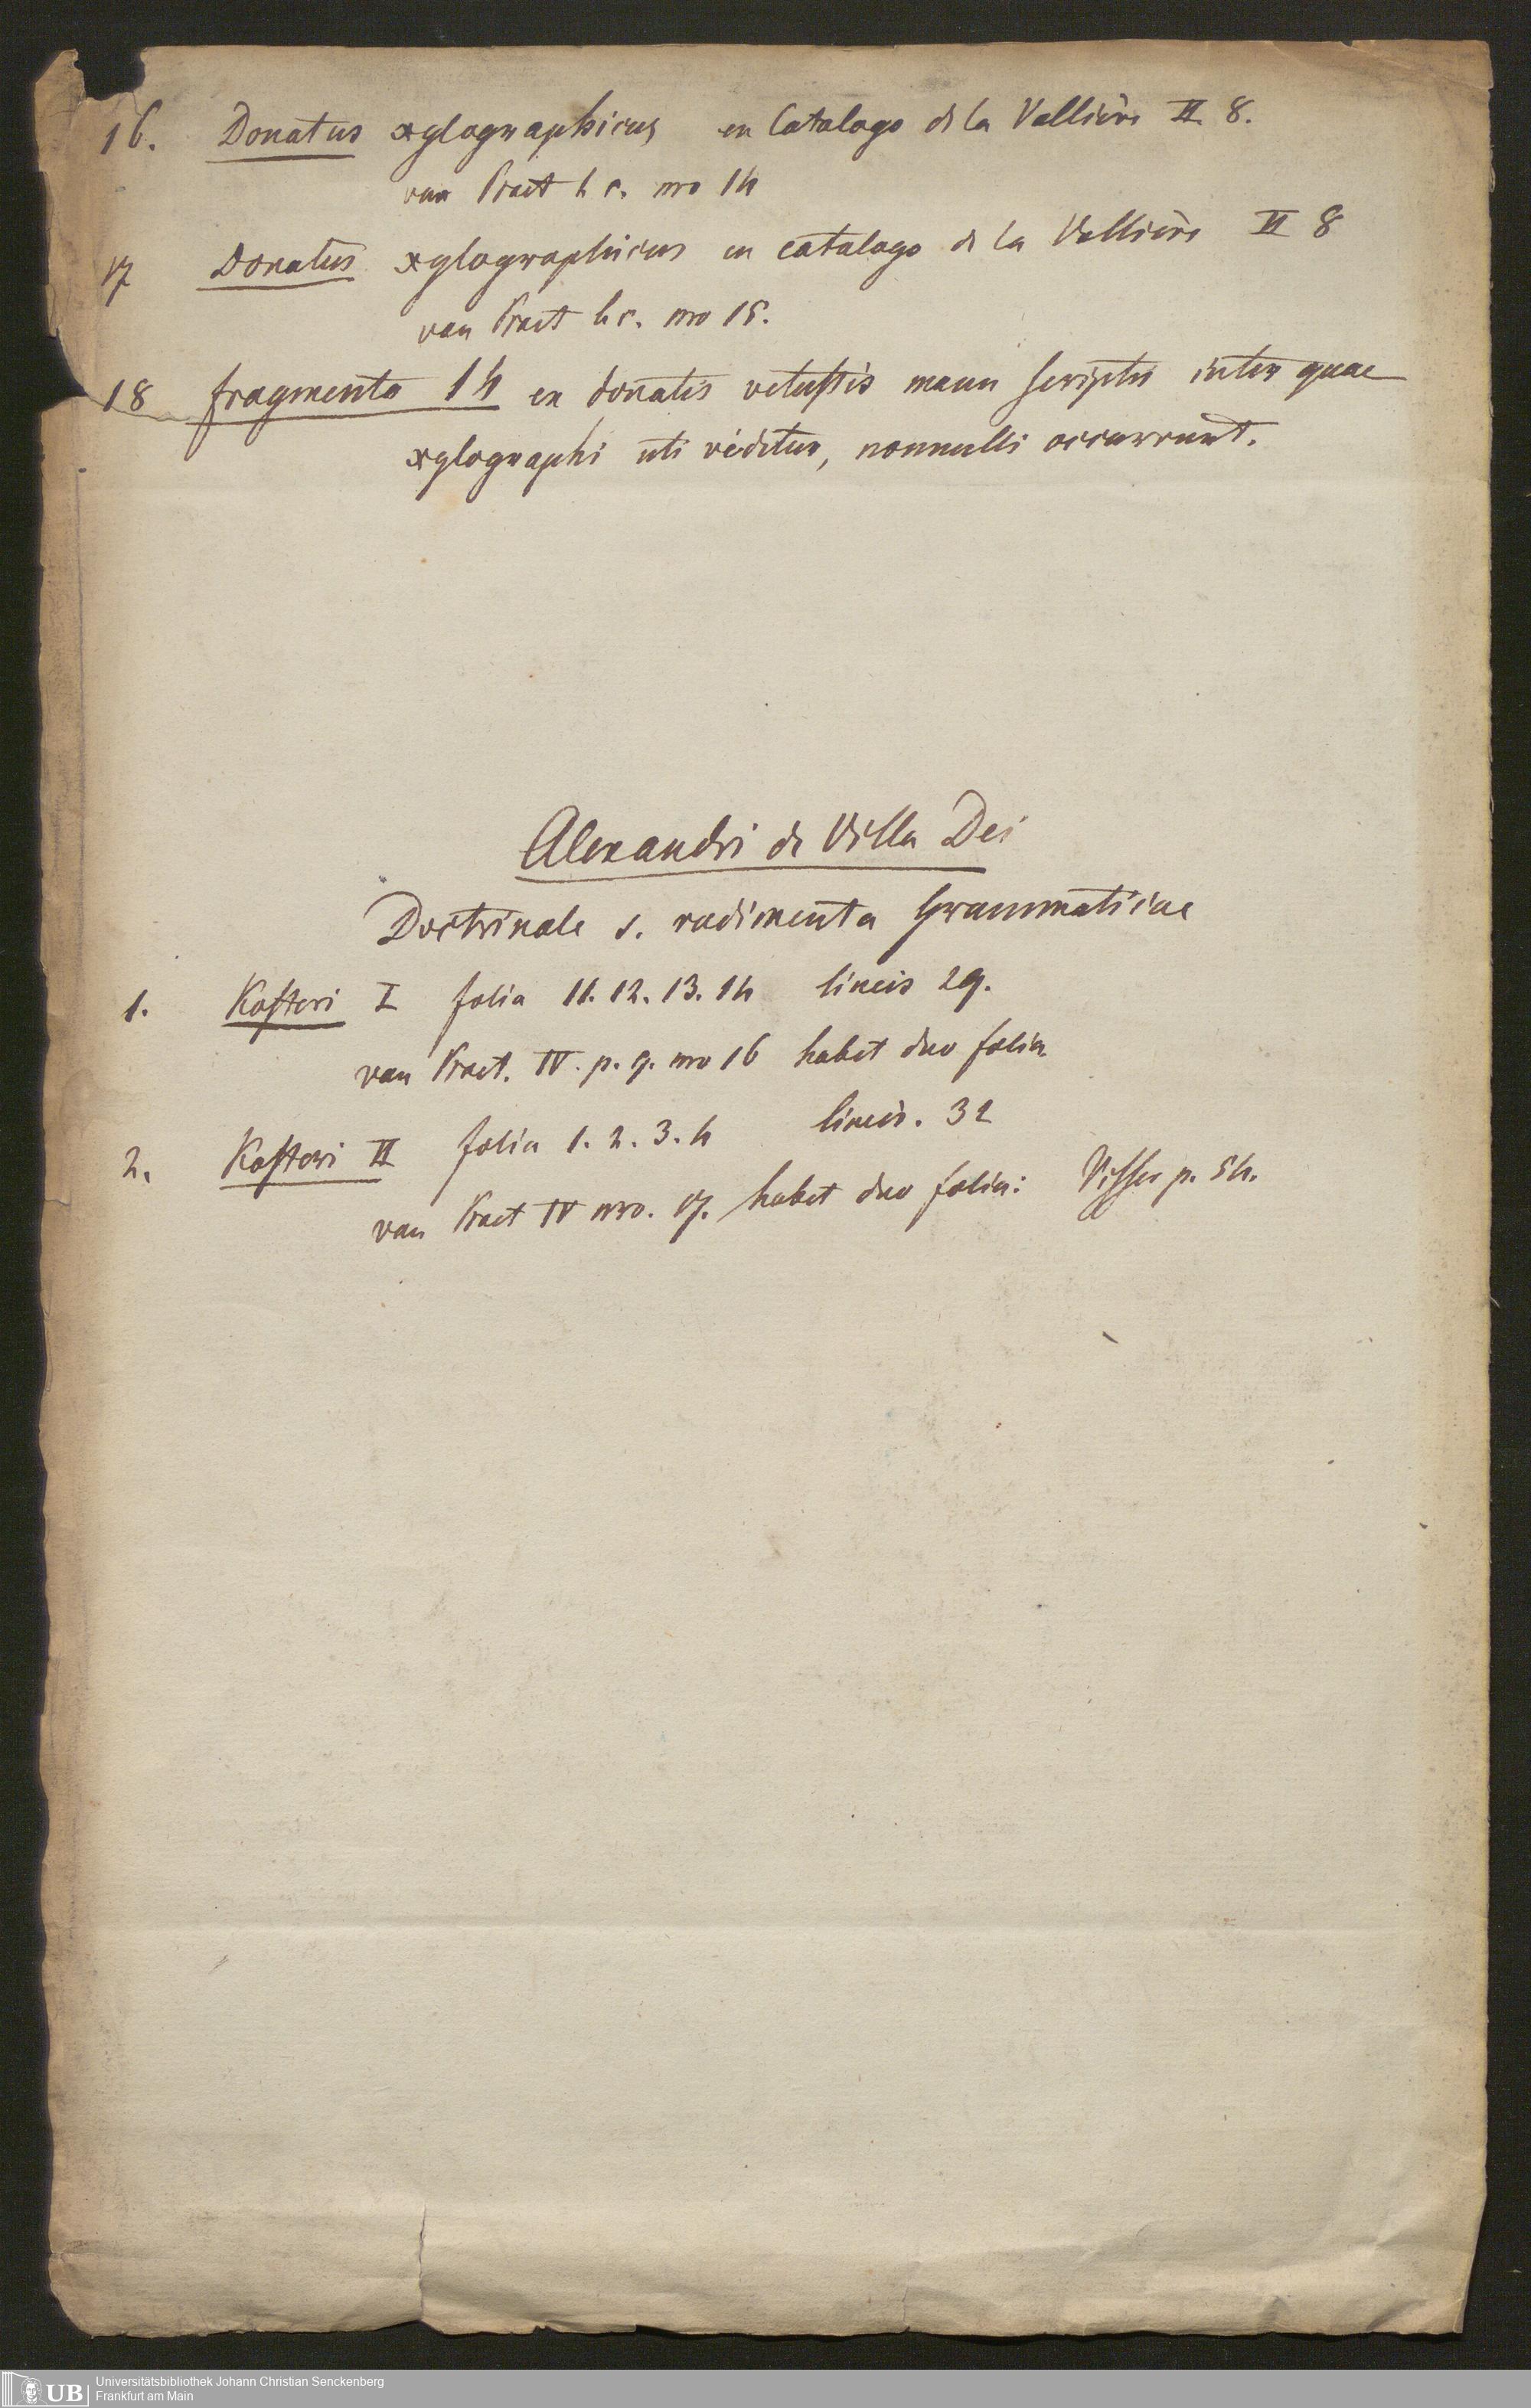 16. Donatus xylographicus ex Catalogo de la Vallière II 8.
van Praet l. c. nro 14
17 Donatus xylographicus ex catalogo de la Vallière II 8
van Praet l. c. nro 15.
18 fragmenta 14 ex donatis vetustis manu scriptis inter quae
xylographi uti videtur, nonnulli occurrunt.
Alexandri de Villa Dei
Doctrinale s. rudimenta Grammaticae
1. Kosteri I folia 11. 12. 13. 14 lineis 29.
van Praet. IV. p. 9. nro 16 habet duo folia
2. Kosteri II folia 1. 2. 3. 4 lineis. 32
van Praet IV nro. 17. habet duo folia: Visser p. 54.
UB Universitätsbibliothek Johann Christian Senckenberg
Frankfurt am Main